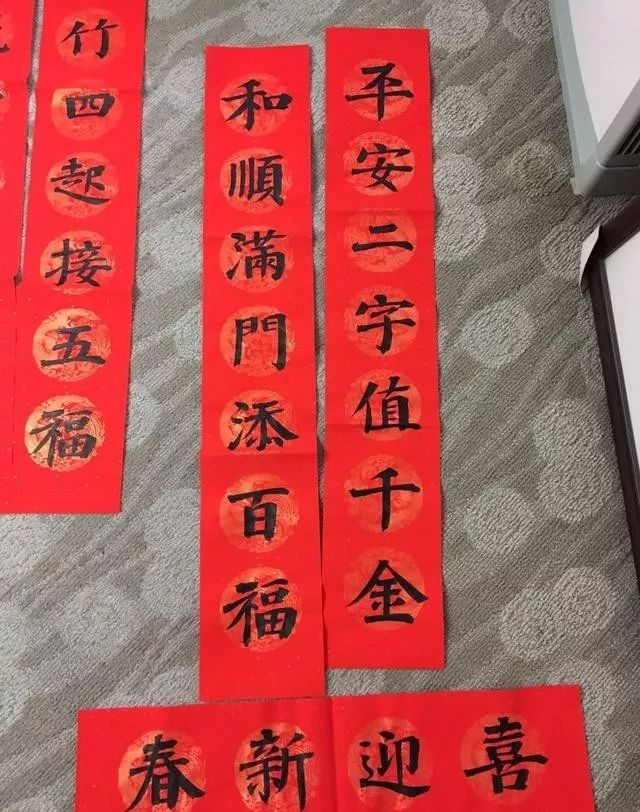 平安二字值千金
和順滿門添百福
喜迎新春
竹四起接五福